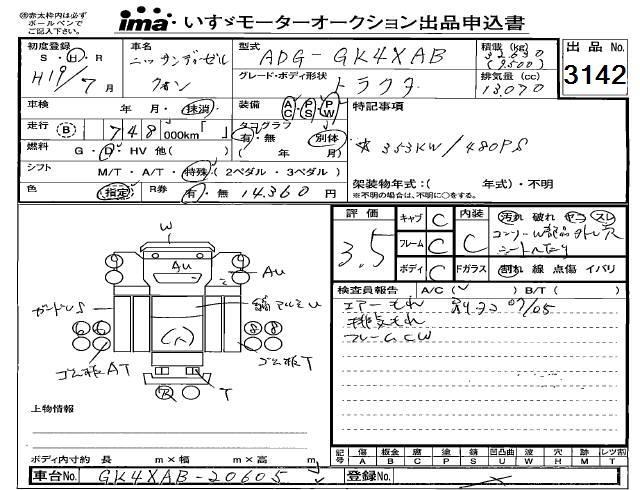 ※赤太枠内は必ず
ボールペンで
ご記入下さい。
ima いすゞモーターオークション出品申込書
初度登録 車名 型式 積載(kg) 出品No.
S・H・R ニッサンディーゼル ADG-GK4XAB (9,500) 3142
H19/7月 クオン グレード・ボディ形状 トラクタ 排気量(cc) 13,070
車検 年 月・抹消 装備 AC・PS・PW 特記事項
走行 (B) 748000km「 」 タコグラフ 有・無 別体 ( 年 月)
☆353KW/480PS
燃料 G・D・HV 他( )
シフト M/T・A/T・特殊(2ペダル・3ペダル) 架装物年式:( 年式)・不明
色 指定 R券 有・無 14,360円 ※不明の場合は、不明に○をする。
評価 3.5 キャブ C 内装 C 汚れ 破れ ヤコ スレ
フレーム C
ボディ C Fガラス 割れ 線 点傷 イバリ
検査員報告 A/C( ) B/T( )
エアーもれ 07/05
排気もれ
フレームCW
W
Au
Au
ゴム板AT
ゴム板T
T
上物情報
ボディ内寸約 長 m×幅 m×高 m
記号 傷 板金 腐 塗 錆 凹凸曲 波 穴 跡 レツ割
A B C P S U W H M T
車台No. GK4XAB-20605 登録No.